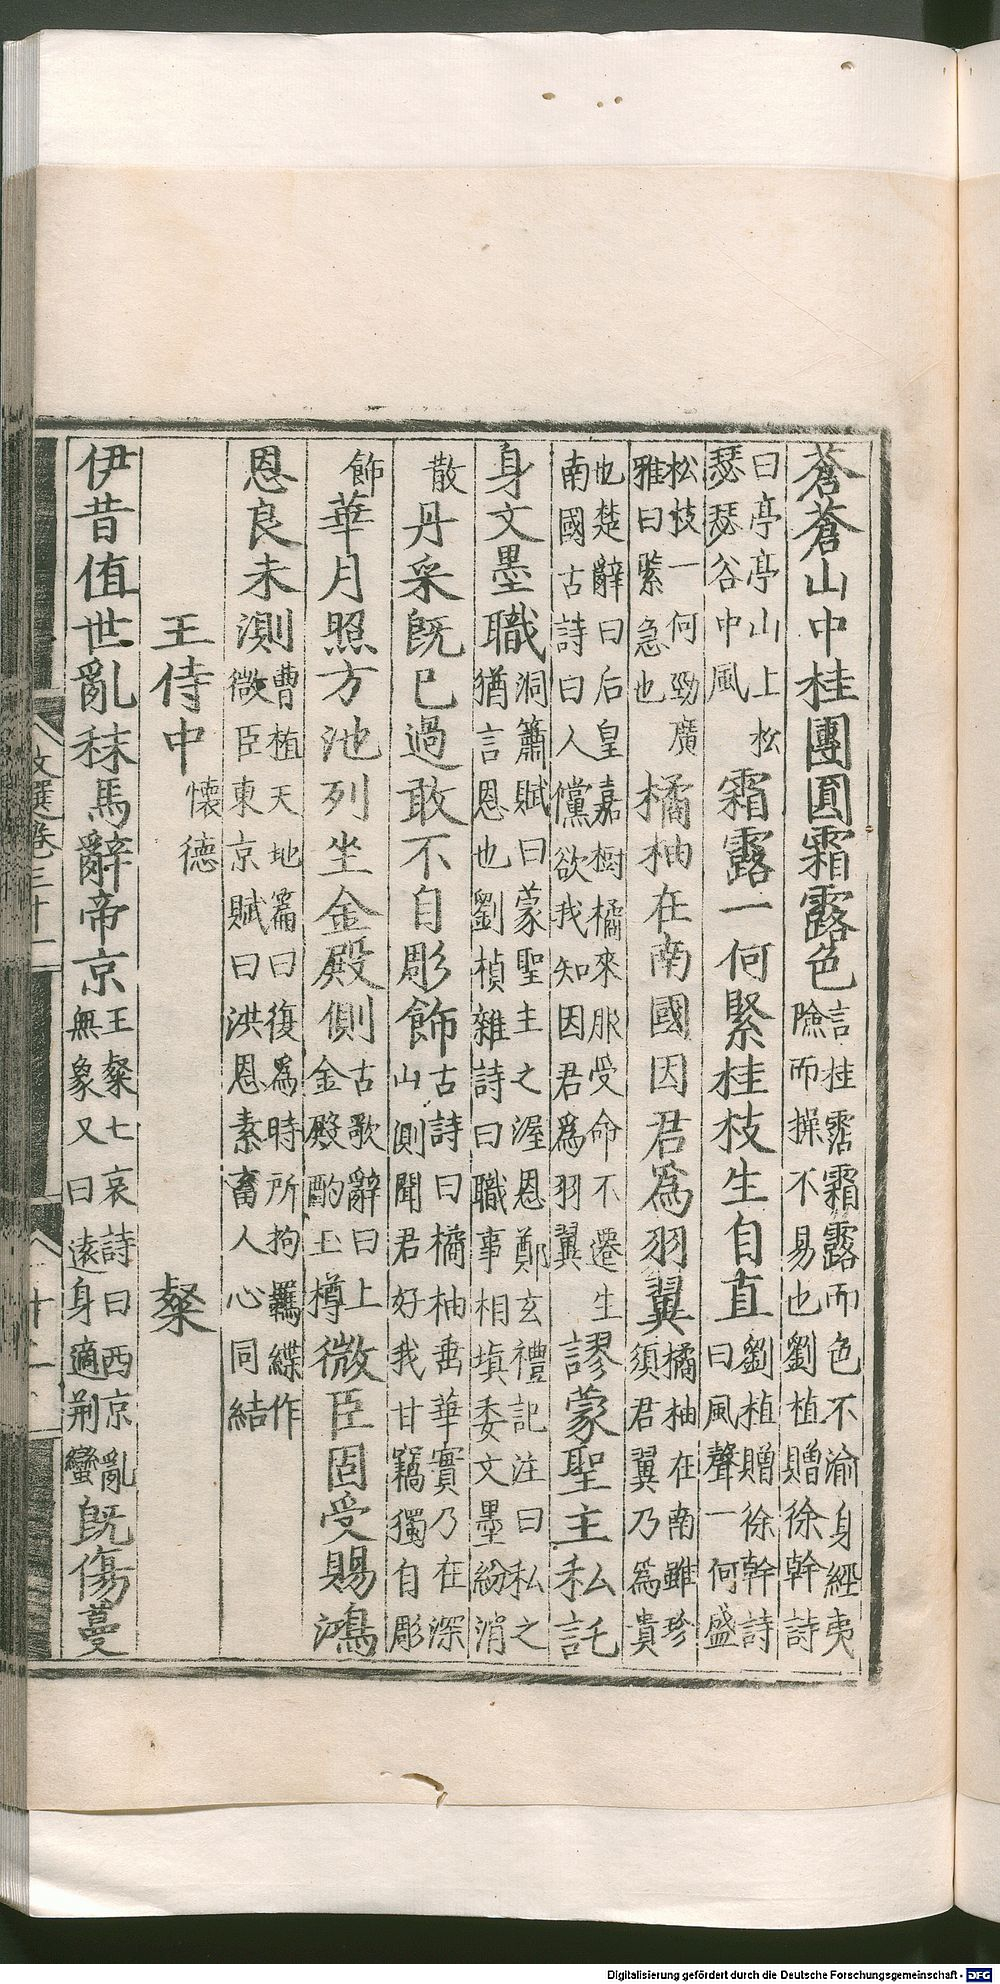 蒼蒼山中桂團圓霜露色言桂霑霜露而色不渝身經夷險而操不易也劉楨贈徐幹詩
曰亭亭山上松瑟瑟谷中風霜露一何緊桂枝生自直劉楨贈徐幹詩曰風聲一何盛
松枝一何勁廣雅曰緊急也橘柚在南國因君為羽翼橘柚在南雖珍須君翼乃為貴
也楚辭曰后皇嘉樹橘來服受命不遷生南國古詩曰人儻欲我知因君為羽翼謬蒙聖主私託
身文墨職洞簫賦曰蒙聖主之渥恩鄭玄禮記注曰私之猶言恩也劉楨雜詩曰職事相填委文墨紛消
散丹采既已過敢不自彫飾古詩曰橘柚垂華實乃在深山側聞君好我甘竊獨自彫
飾華月照方池列坐金殿側古歌辭曰上金殿酌玉樽微臣固受賜鴻
恩良未測曹植天地篇曰復為時所拘羈緤作微臣東京賦曰洪恩素畜人心同結
王侍中懷德 粲
伊昔值世亂秣馬辭帝京王粲七哀詩曰西京亂無象又曰遠身適荊蠻既傷蔓
文選卷三十一
Digitalisierung gefördert durch die Deutsche Forschungsgemeinschaft - DFG